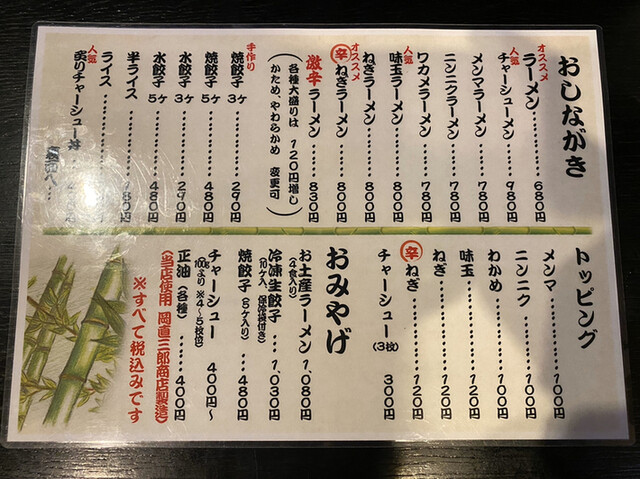 おしながき
オススメ
ラーメン………680円
人気
チャーシューメン……980円
メンマラーメン……780円
ニンニクラーメン……780円
ワカメラーメン……780円
人気
味玉ラーメン……800円
ねぎラーメン……800円
オススメ
辛ねぎラーメン……800円
激辛ラーメン……830円
(各種大盛りは 120円増し
かため、やわらかめ 変更可)
手作り
焼餃子 3ケ……290円
焼餃子 5ケ……480円
水餃子 3ケ……290円
水餃子 5ケ……480円
半ライス……180円
ライス
人気
炙りチャーシュー丼
トッピング
メンマ……100円
ニンニク……100円
わかめ……100円
味玉……120円
ねぎ……120円
辛ねぎ……120円
チャーシュー(3枚) 300円
おみやげ
お土産ラーメン 1,080円
(4食入り)
冷凍生餃子… 1,030円
(10ケ入、保冷袋付き)
焼餃子(5ケ入り)…480円
チャーシュー 400円〜
(100gより ※4〜5枚位)
正油(各種)……400円
(当店使用 岡直三郎商店製造)
※すべて税込みです